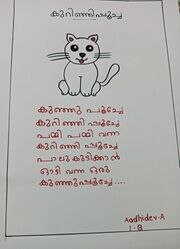 കുറിഞ്ഞിപ്പൂച്ചേ
കുഞ്ഞു പൂച്ചേ
കുറിഞ്ഞി പൂച്ചേ
പമ്മി പമ്മി വന്ന
കുറിഞ്ഞി പൂച്ചേ
പാലു കുടിക്കാൻ
ഓടി വന്ന ഒരു
കുഞ്ഞുപൂച്ചേ....
Aadhidev.A
1-B